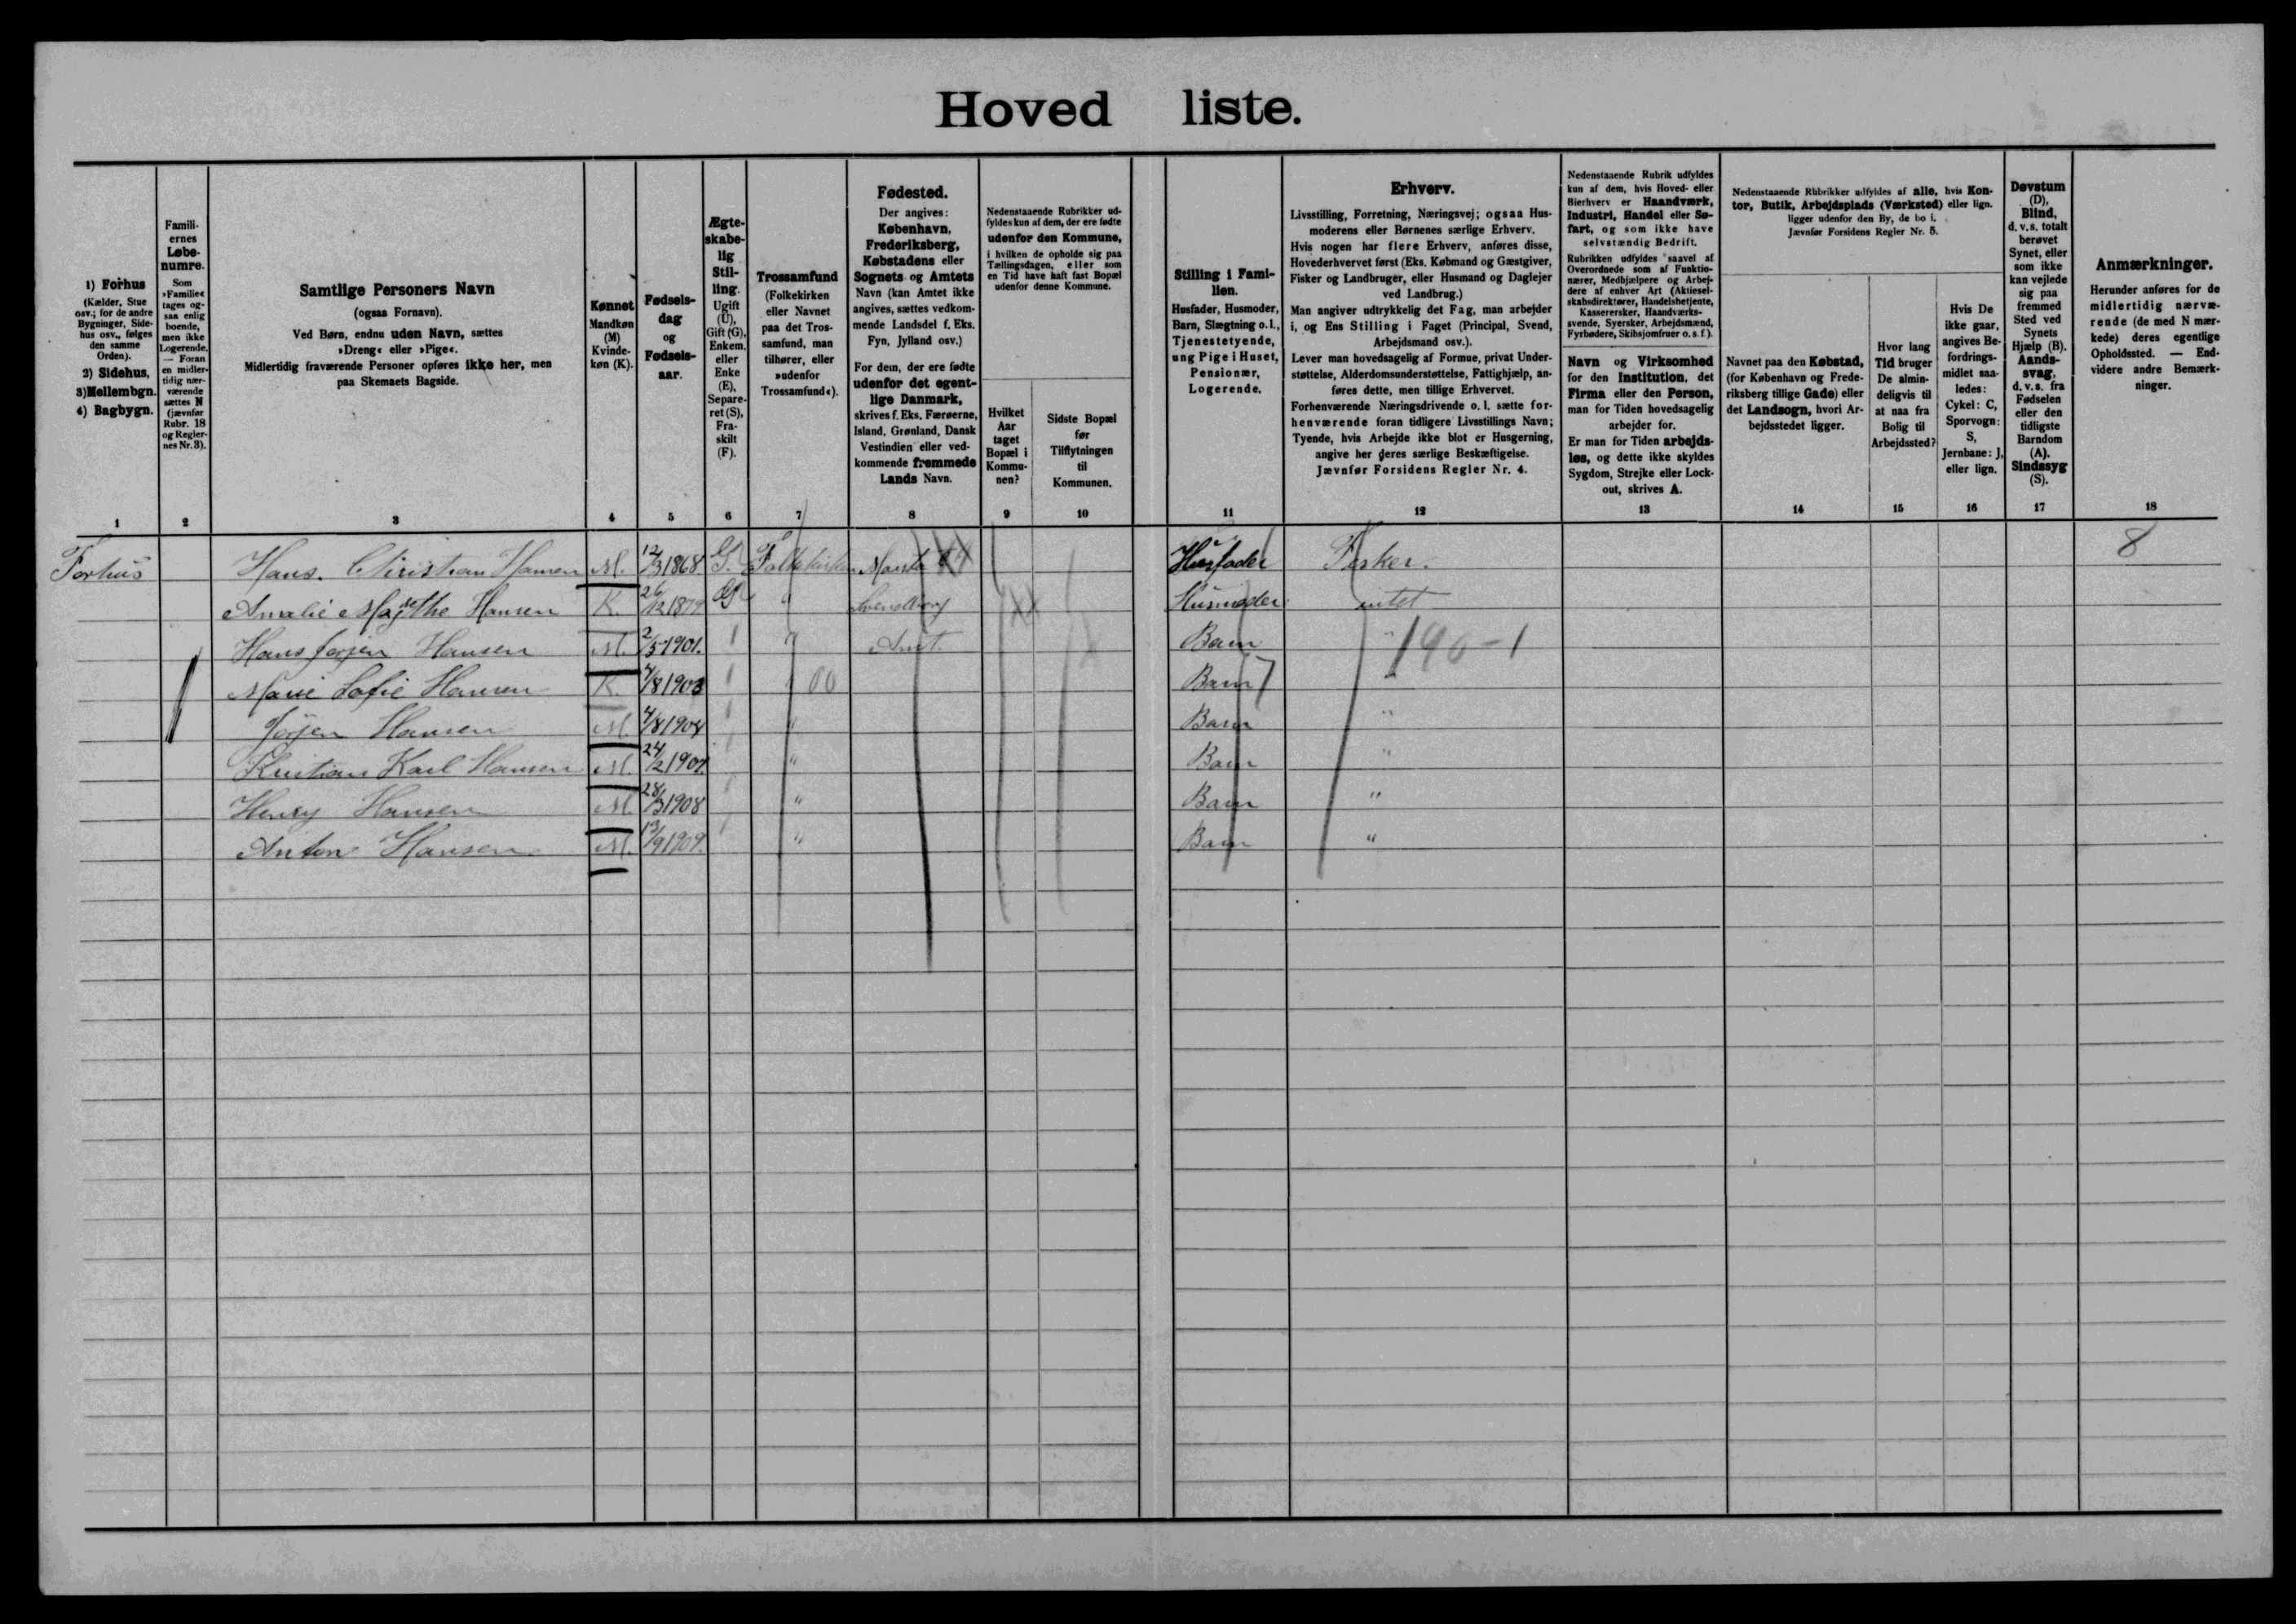 Hoved liste.
1) Forhus
(Kælder, Stue
osv.; for de andre
Bygninger, Side-
hus osv., følges
den samme
Orden).
2) Sidehus,
3) Mellembgn.
4) Bagbygn.
Famili-
ernes
Løbe-
numre.
Som
»Familie«
tages og-
saa enlig
boende,
men ikke
Logerende.
— Foran
en midler-
tidig nær-
værende
sættes N
(jævnfør
Rubr. 18
og Regler-
nes Nr. 3).
Samtlige Personers Navn
(ogsaa Fornavn).
Ved Børn, endnu uden Navn, sættes
»Dreng« eller »Pige«.
Midlertidig fraværende Personer opføres ikke her, men
paa Skemaets Bagside.
Kønnet
Mandkøn
(M)
Kvinde-
køn (K).
Fødsels-
dag
og
Fødsels-
aar.
Ægte-
skabe-
lig
Stil-
ling.
Ugift
(U),
Gift (G),
Enkem.
eller
Enke
(E),
Separe-
ret (S),
Fra-
skilt
(F).
Trossamfund
(Folkekirken
eller Navnet
paa det Tros-
samfund, man
tilhører, eller
»udenfor
Trossamfund«).
Fødested.
Der angives:
København,
Frederiksberg,
Købstadens eller
Sognets og Amtets
Navn (kan Amtet ikke
angives, sættes vedkom-
mende Landsdel f. Eks.
Fyn, Jylland osv.)
For dem, der ere fødte
udenfor det egent-
lige Danmark,
skrives f. Eks. Færøerne,
Island, Grønland, Dansk
Vestindien eller ved-
kommende fremmede
Lands Navn.
Nedenstaaende Rubrikker ud-
fyldes kun af dem, der ere fødte
udenfor den Kommune,
i hvilken de opholde sig paa
Tællingsdagen, eller som
en Tid have haft fast Bopæl
udenfor denne Kommune.
Hvilket
Aar
taget
Bopæl i
Kommu-
nen?
Sidste Bopæl
før
Tilflytningen
til
Kommunen.
Stilling i Fami-
lien.
Husfader, Husmoder,
Barn, Slægtning o. l.,
Tjenestetyende,
ung Pige i Huset,
Pensionær,
Logerende.
Erhverv.
Livsstilling, Forretning, Næringsvej; ogsaa Hus-
moderens eller Børnenes særlige Erhverv.
Hvis nogen har flere Erhverv, anføres disse,
Hovederhvervet først (Eks. Købmand og Gæstgiver,
Fisker og Landbruger, eller Husmand og Daglejer
ved Landbrug.)
Man angiver udtrykkelig det Fag, man arbejder
i, og Ens Stilling i Faget (Principal, Svend,
Arbejdsmand osv.).
Lever man hovedsagelig af Formue, privat Under-
støttelse, Alderdomsunderstøttelse, Fattighjælp, an-
føres dette, men tillige Erhvervet.
Forhenværende Næringsdrivende o. l. sætte for-
henværende foran tidligere Livsstillings Navn;
Tyende, hvis Arbejde ikke blot er Husgerning,
angive her deres særlige Beskæftigelse.
Jævnfør Forsidens Regler Nr. 4.
Nedenstaaende Rubrik udfyldes
kun af dem, hvis Hoved- eller
Bierhverv er Haandværk,
Industri, Handel eller Sø-
fart, og som ikke have
selvstændig Bedrift.
Rubrikken udfyldes saavel af
Overordnede som af Funktio-
nærer, Medhjælpere og Arbej-
dere af enhver Art (Aktiesel-
skabsdirektører, Handelsbetjente,
Kasserersker, Haandværks-
svende, Syersker, Arbejdsmænd,
Fyrbødere, Skibsjomfruer o. s. f.).
Navn og Virksomhed
for den Institution, det
Firma eller den Person,
man for Tiden hovedsagelig
arbejder for.
Er man for Tiden arbejds-
løs, og dette ikke skyldes
Sygdom, Strejke eller Lock-
out, skrives A.
Nedenstaaende Rubrikker udfyldes af alle, hvis Kon-
tor, Butik, Arbejdsplads (Værksted) eller lign.
ligger udenfor den By, de bo i.
Jævnfør Forsidens Regler Nr. 5.
Navnet paa den Købstad,
(for København og Frede-
riksberg tillige Gade) eller
det Landsogn, hvori Ar-
bejdsstedet ligger.
Hvor lang
Tid bruger
De almin-
deligvis til
at naa fra
Bolig til
Arbejdssted?
Hvis De
ikke gaar,
angives Be-
fordrings-
midlet saa-
ledes:
Cykel: C,
Sporvogn:
S,
Jernbane: J,
eller lign.
Døvstum
(D),
Blind,
d. v. s. totalt
berøvet
Synet, eller
som ikke
kan vejlede
sig paa
fremmed
Sted ved
Synets
Hjælp (B).
Aands-
svag,
d. v. s. fra
Fødselen
eller den
tidligste
Barndom
(A).
Sindssyg
(S).
Anmærkninger.
Herunder anføres for de
midlertidig nærvæ-
rende (de med N mær-
kede) deres egentlige
Opholdssted. — End-
videre andre Bemærk-
ninger.
1 2 3 4 5 6 7 8 9 10 11 12 13 14 15 16 17 18
Forhus Hans. Christian Hansen M. 12/3 1868 G. Folkekirken XX Husfader Fisker. 8
Amalie Hansen K. 26/12 G " Svendborg XX Husmoder intet
Hans Jørjen Hansen M. 2/5 1901. " Amt. X Barn " 190-1
Marie Sofie Hansen K. 4/8 1903 " 00 Barn 7 "
Jørjen Hansen M. 4/8 1904 " Barn "
Kristian Karl Hansen M. 24/2 " Barn "
Henry Hansen M. 28/3 1908 " Barn "
Anton Hansen M. 13/9 1909. " Barn "